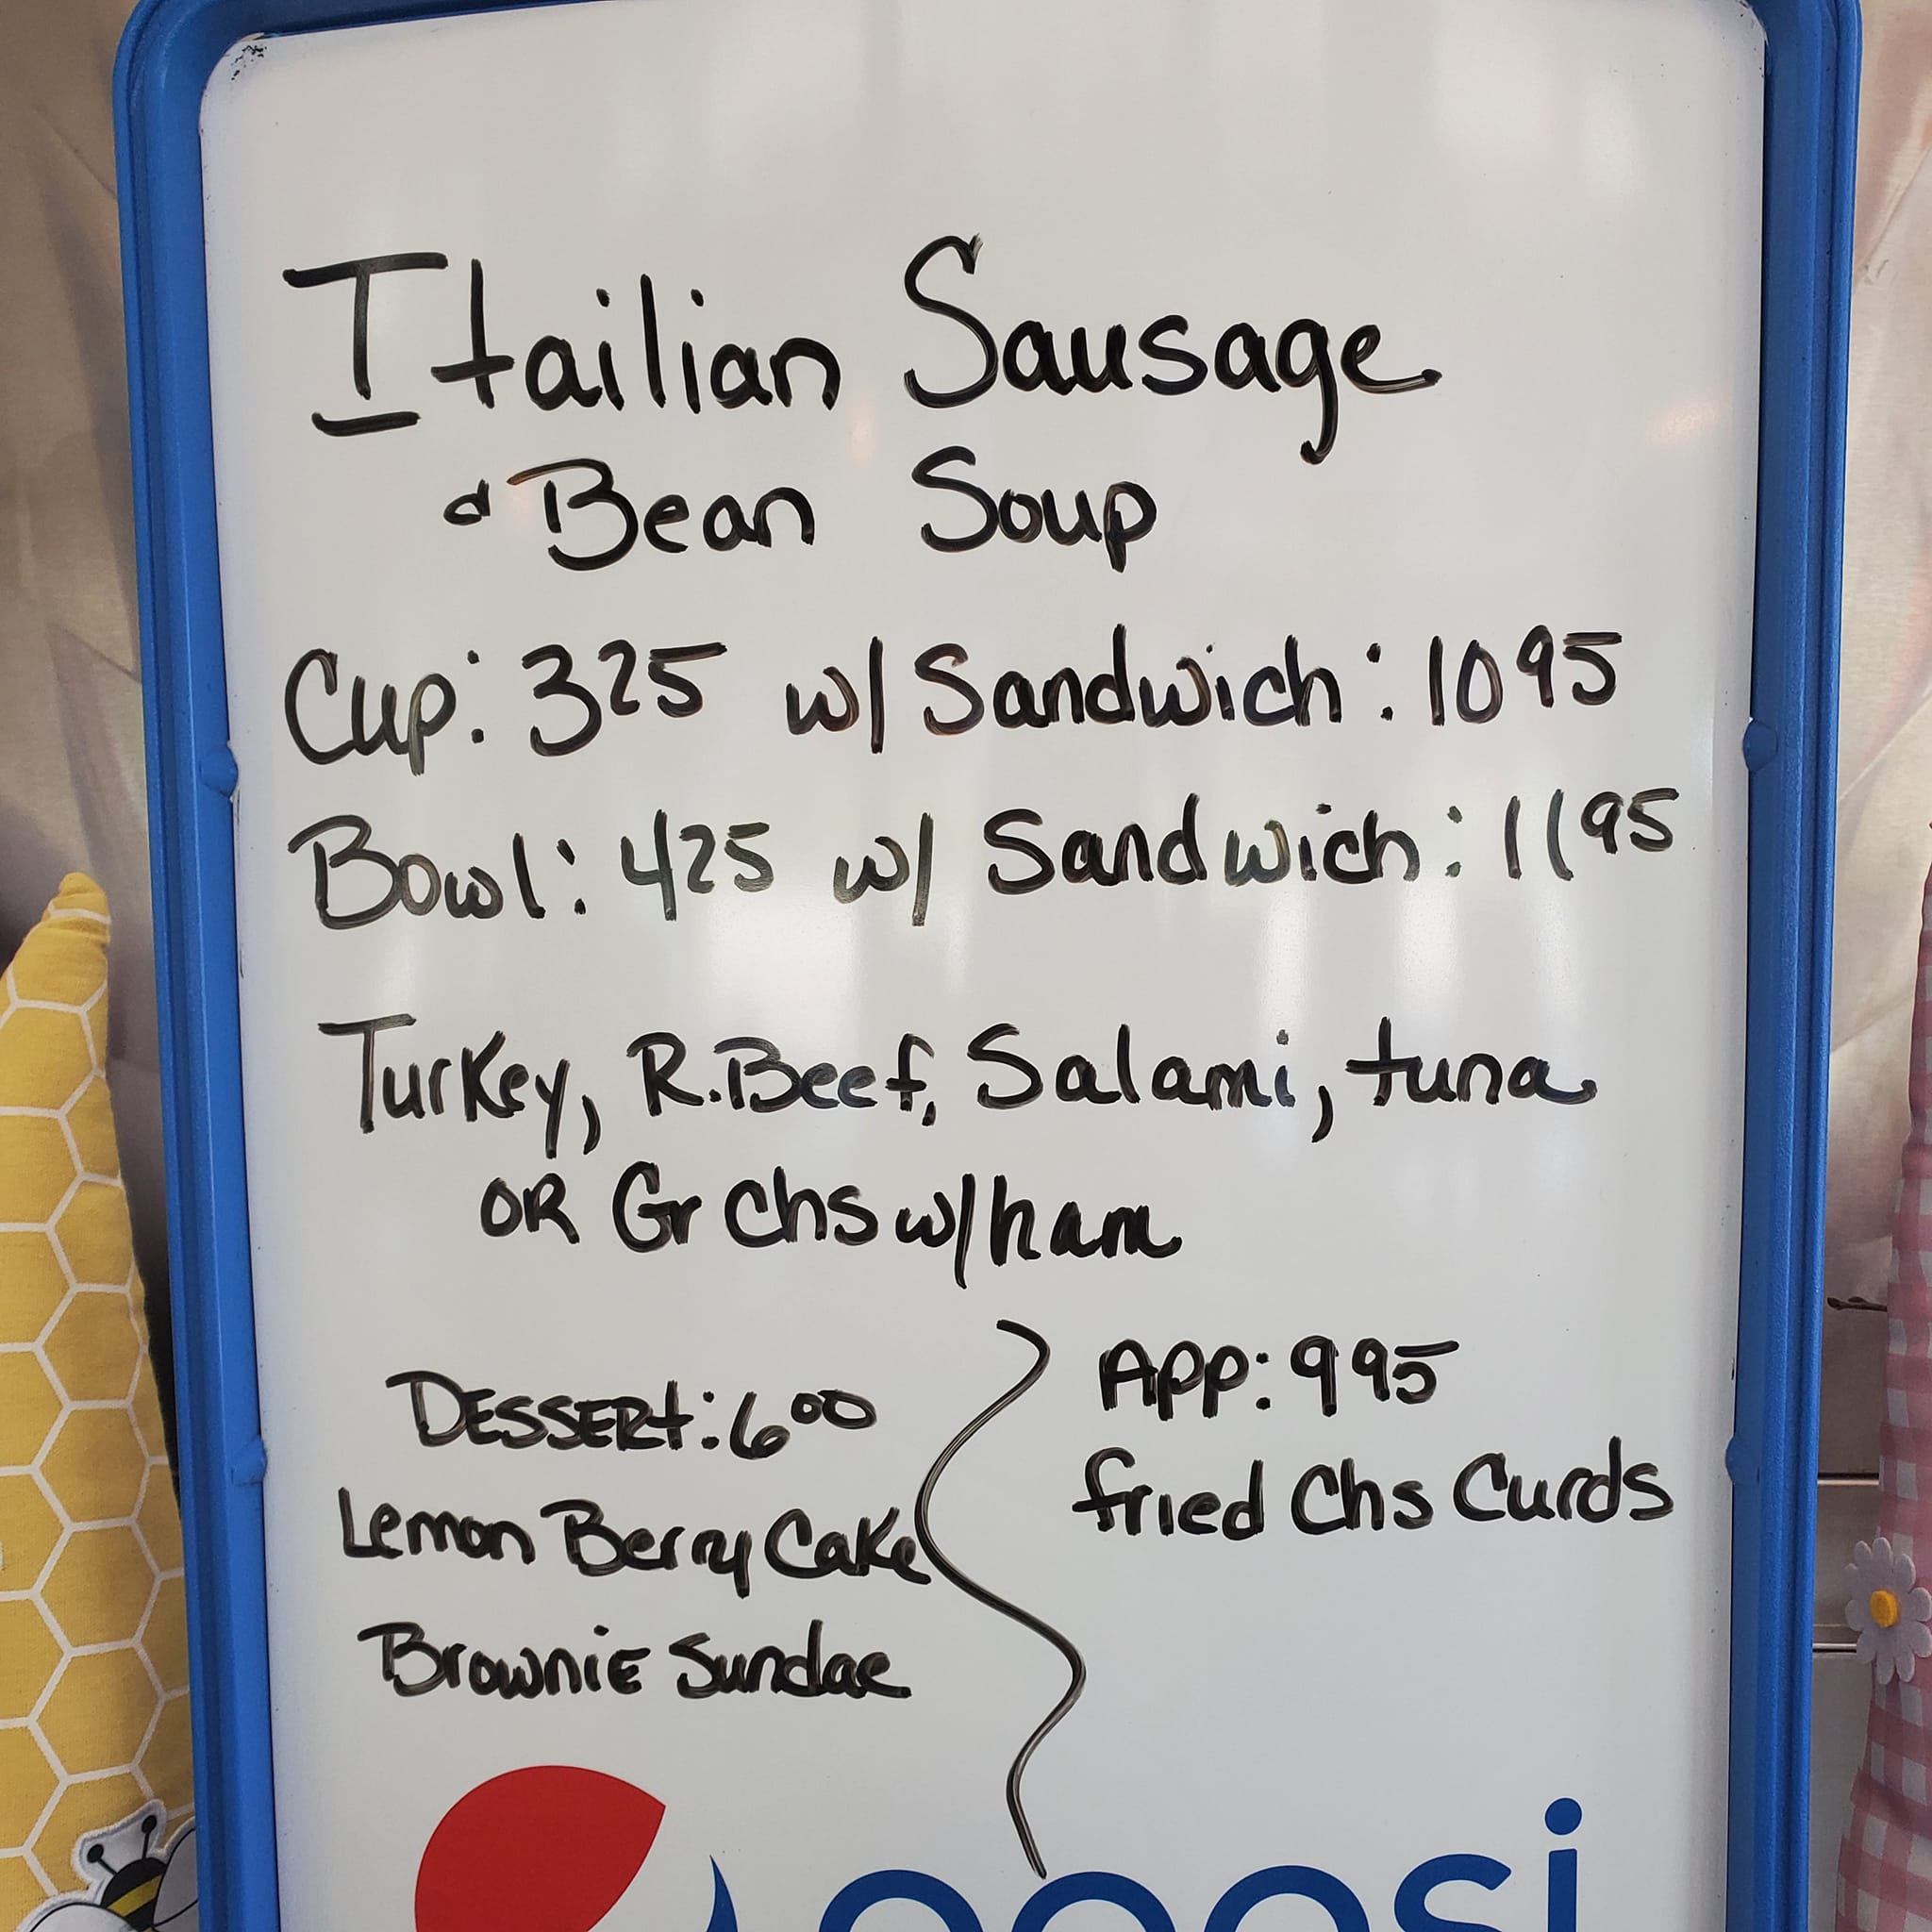 Itailian Sausage
& Bean Soup
Cup: 325 w/ Sandwich: 1095
Bowl: 425 w/ Sandwich: 1195
Turkey, R.Beef, Salami, tuna
OR Gr Chs w/ham
DESSERt: 600
Lemon Berry Cake
BrowniE Sundae
App: 995
fried Chs Curds
pepsi